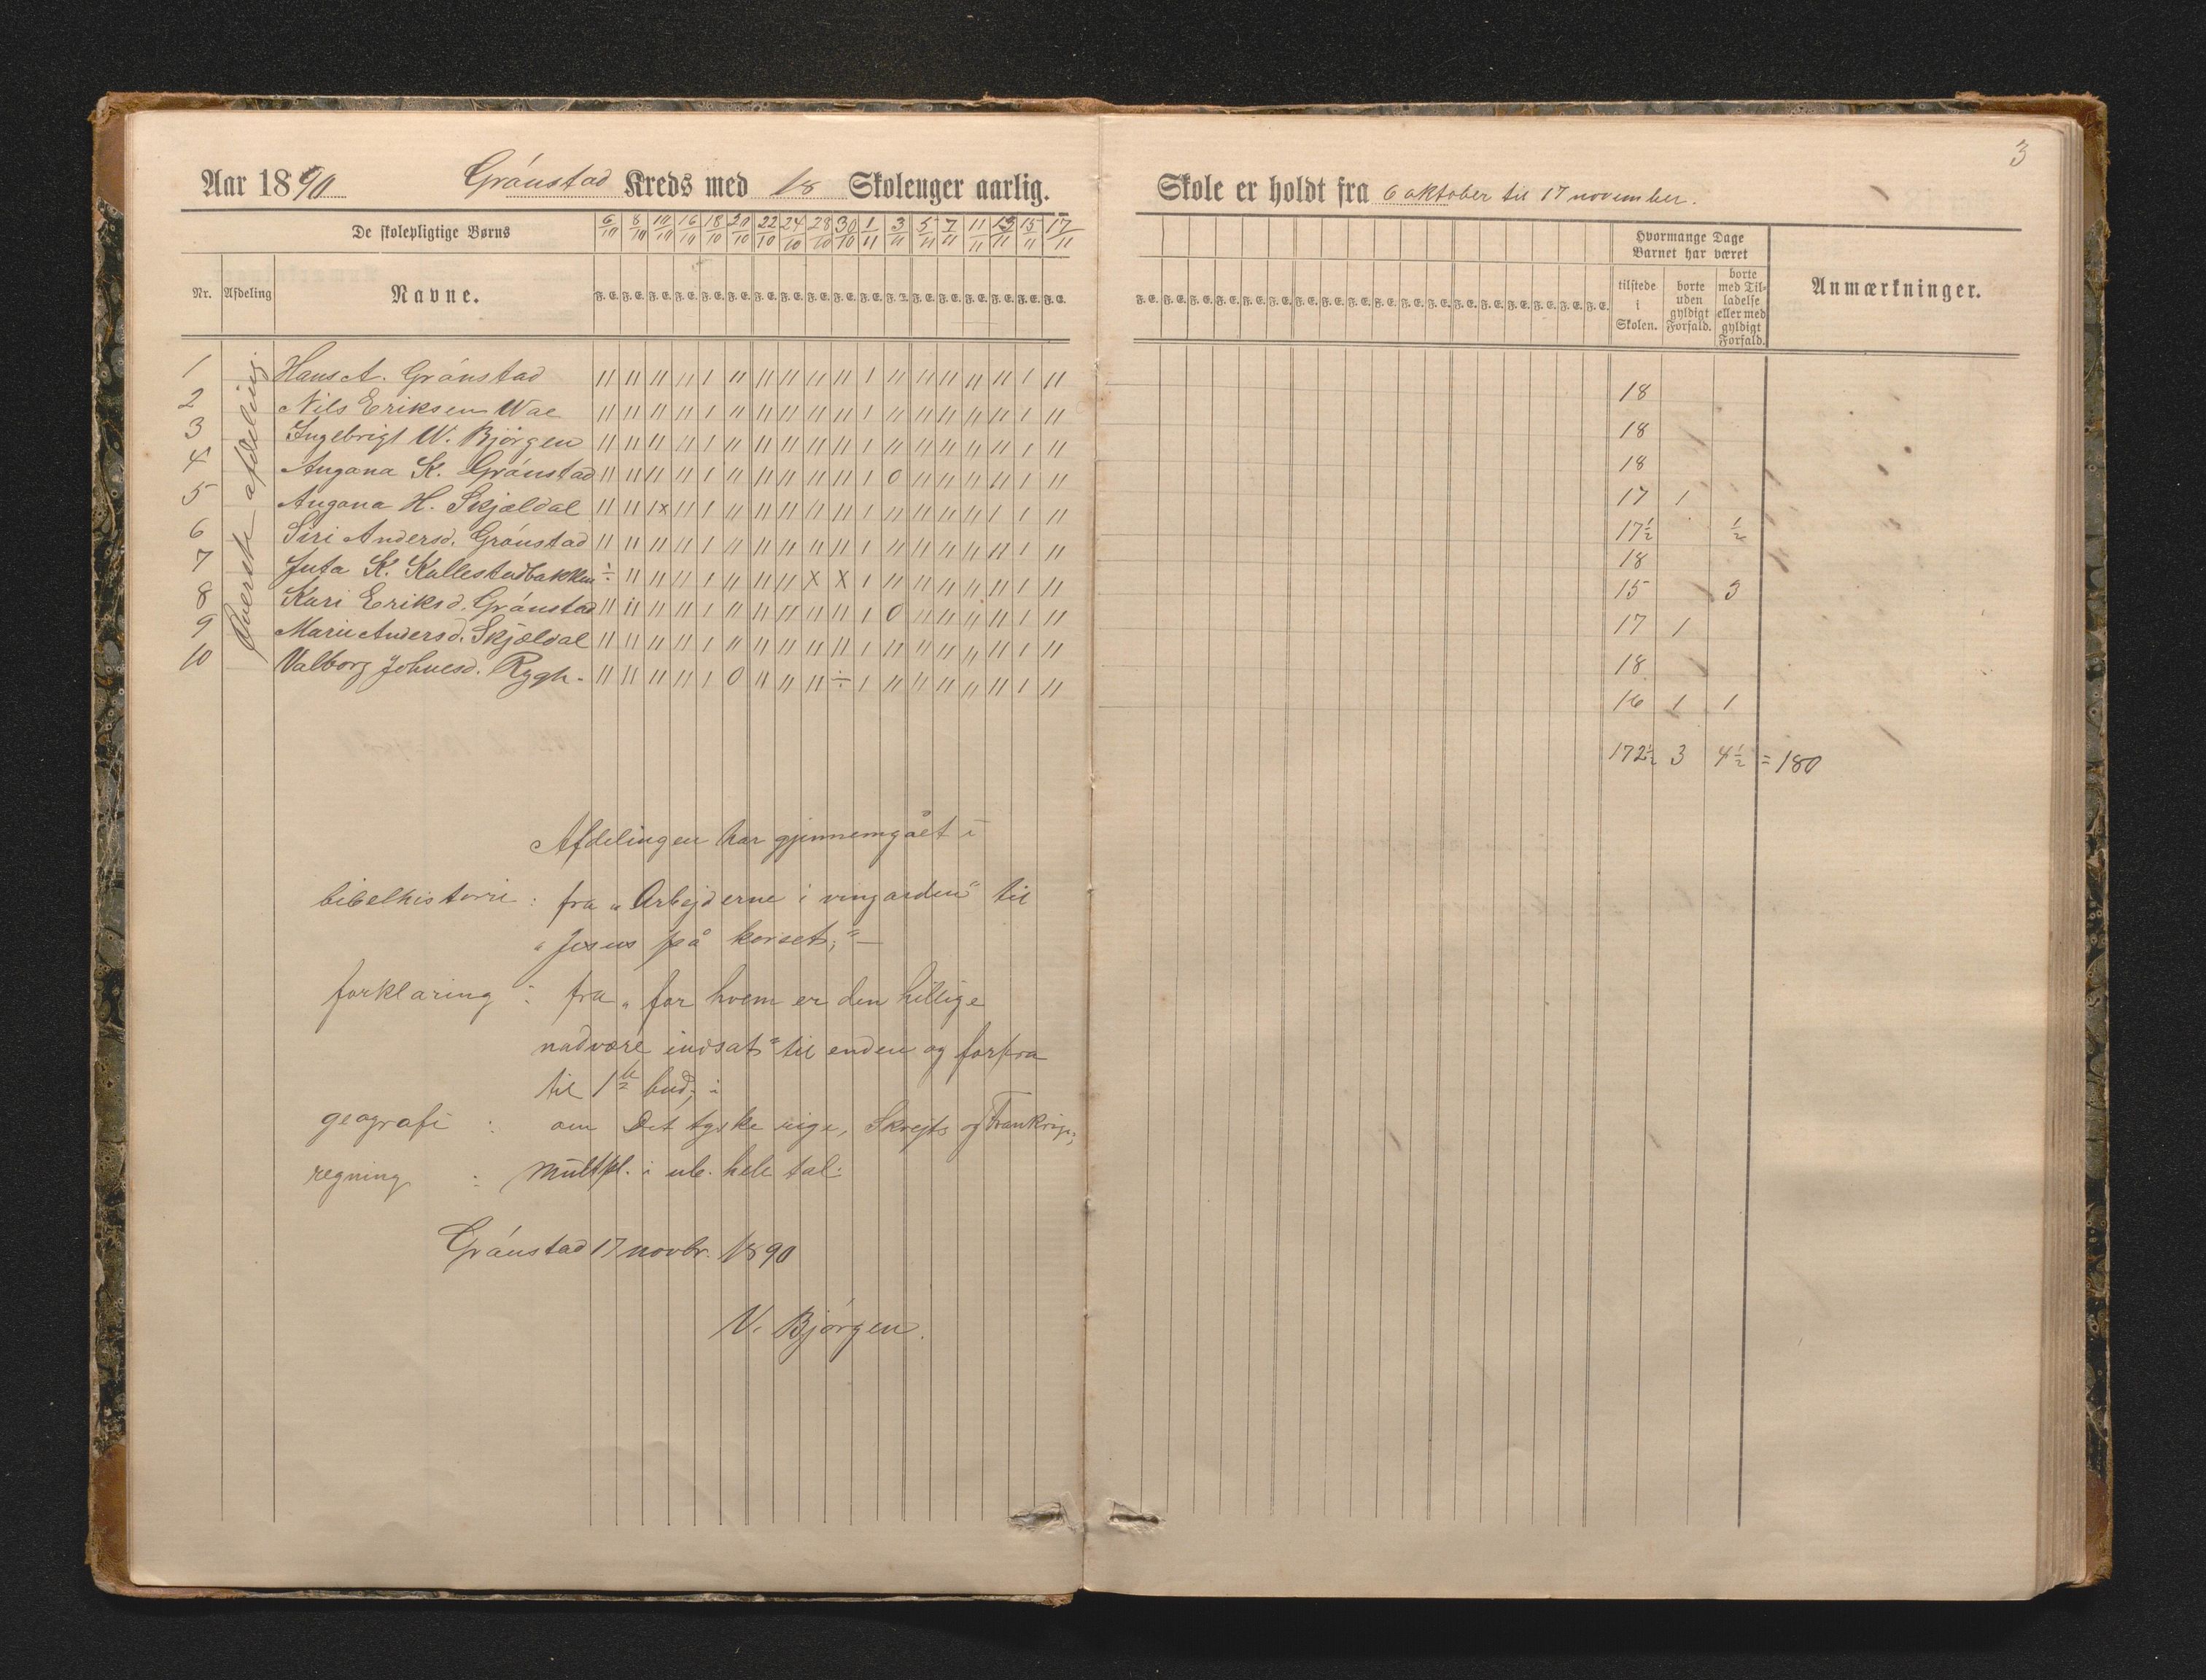 3
Aar 1890 Grónstad Kreds med 18 Skolenger aarlig.
Skole er holdt fra 6 oktober til 17 november.
De skolepligtige Børns
6/10 8/10 10/10 16/10 18/10 20/10 22/10 24/10 28/10 30/10 1/11 3/11 5/11 7/11 11/11 13/11 15/11 17/11
Hvormange Dage
Barnet har været
Nr. Afdeling Navne.
F. E. F. E. F. E. F. E. F. E. F. E. F. E. F. E. F. E. F. E. F. E. F. E. F. E. F. E. F. E. F. E. F. E. F. E.
F. E. F. E. F. E. F. E. F. E. F. E. F. E. F. E. F. E. F. E. F. E. F. E. F. E. F. E. F. E. F. E. F. E. F. E.
tilstede
i
Skolen.
borte
uden
gyldigt
Forfald.
borte
med Til-
ladelse
eller med
gyldigt
Forfald.
Anmærkninger.
Øverste afdeling
1 Hans A. Grónstad 11 11 11 11 1 11 11 11 11 11 1 11 11 11 11 11 1 11 18
2 Nils Eriksen Wae 11 11 11 11 1 11 11 11 11 11 1 11 11 11 11 11 1 11 18
3 Ingebrigt W. Bjórgen 11 11 11 11 1 11 11 11 11 11 1 11 11 11 11 11 1 11 18
4 Augana K. Grónstad 11 11 11 11 1 11 11 11 11 11 1 0 11 11 11 11 1 11 17 1
5 Augana H. Skjældal 11 11 1x 11 1 11 11 11 11 11 1 11 11 11 11 11 1 11 17½ ½
6 Siri Andersd. Grónstad 11 11 11 11 1 11 11 11 11 11 1 11 11 11 11 11 1 11 18
7 Juta K. Kallestadbakken ÷ 11 11 11 1 11 11 11 x x 1 11 11 11 11 11 1 11 15 3
8 Kari Eriksd. Grónstad 11 11 11 11 1 11 11 11 11 11 1 0 11 11 11 11 1 11 17 1
9 Marie Andersd. Skjældal 11 11 11 11 1 11 11 11 11 11 1 11 11 11 11 11 1 11 18
10 Valborg Johnesd. Rygh. 11 11 11 11 1 0 11 11 11 ÷ 1 11 11 11 11 11 1 11 16 1 1
172½ 3 4½ = 180
Afdelingen har gjennemgået i
bibelhistorie : fra „Arbejderne i vingarden" til
„Jesus på korset;" —
forklaring : fra „for hvem er den hillige
nadvere indsat" til enden og forfra
til 1ste bud;
geografi : om Det tyske rige, Skvejts og Frankrige;
regning : Multpl. i ub. hele tal:
Grónstad 17 novbr. 1890
V. Bjórgen.